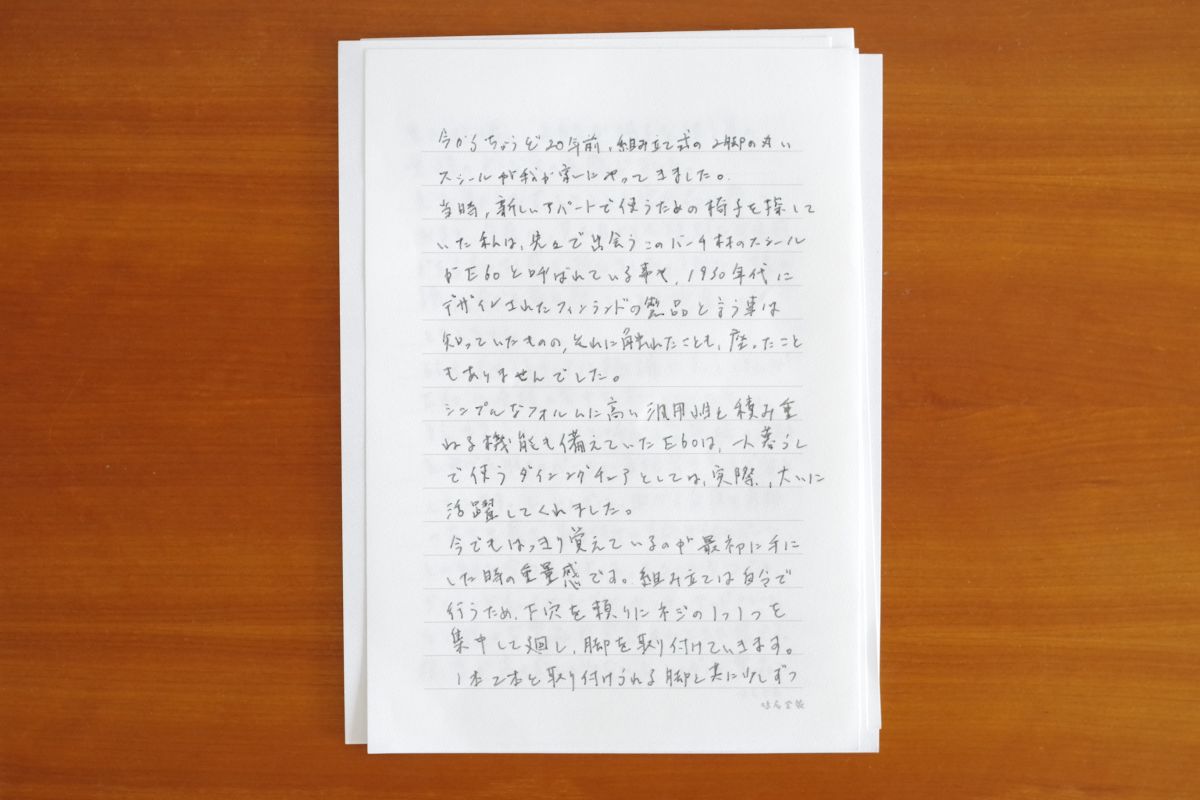 今からちょうど20年前、組み立て式の2脚の丸い
スツールが我が家にやってきました。
当時、新しいアパートで使うための椅子を探して
いた私は、先々で出会うこのバーチ材のスツール
がE60と呼ばれている事や、1930年代に
デザインされたフィンランドの製品と言う事は
知っていたものの、それに触れたことも、座ったこと
もありませんでした。
シンプルなフォルムに高い汎用性と積み重
ねる機能も備えていたE60は、一人暮らし
で使うダイニングチェアとしては、実際、大いに
活躍してくれました。
今でもはっきり覚えているのが最初に手に
した時の重量感です。組み立ては自分で
行うため、下穴を頼りにネジの1つ1つを
集中して廻し、脚を取り付けていきます。
1本2本と取り付けられる脚と共に少しずつ